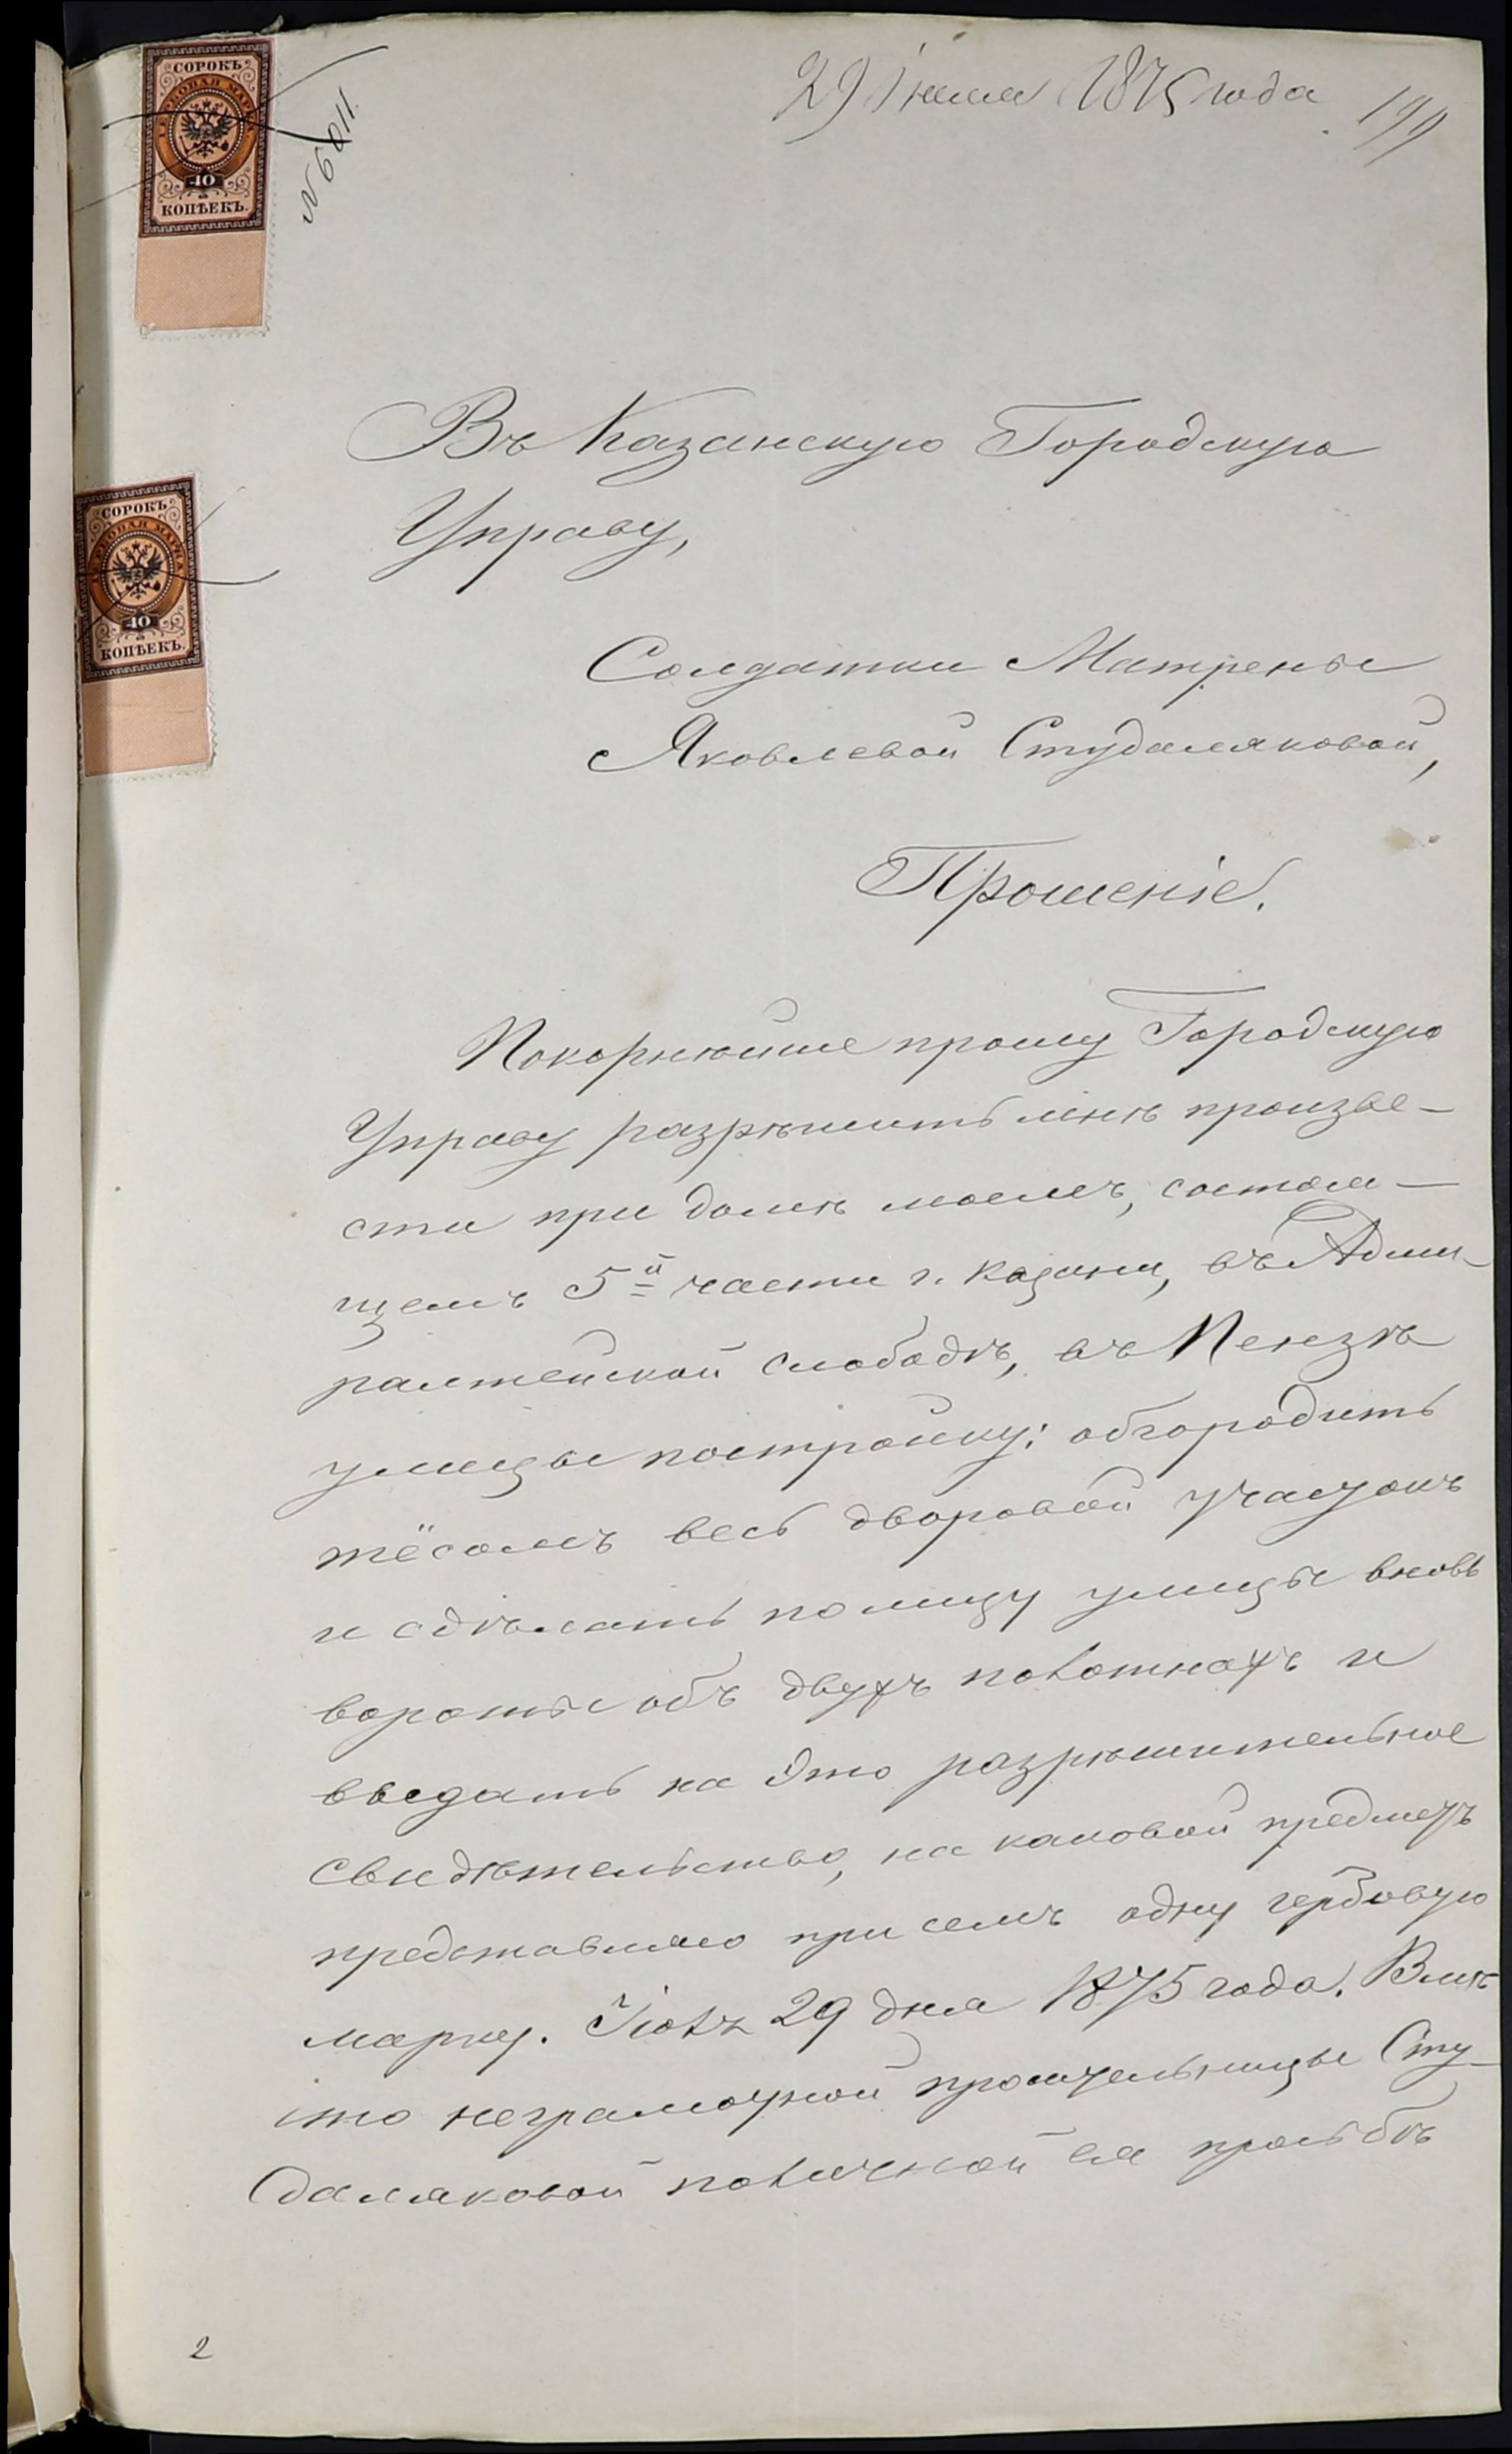 29 Іюля 1875 года
199
СОРОКЪ
ГЕРБОВАЯ МАРКА
40
КОПѢЕКЪ.
Въ Казанскую Городскую
Управу,
СОРОКЪ
ГЕРБОВАЯ МАРКА
40
КОПѢЕКЪ.
Солдатки Матрены
Яковлевой Студаляковой,
Прошеніе.
Покорнѣйше прошу Городскую
Управу разрѣшить мнѣ произве-
сти при домѣ моемъ, состоя-
щемъ 5й части г. Казани, въ Адми-
ралтейской слободѣ, въ Пензѣ
улицы постройку: обгородить
тёсомъ весь дворовой участокъ
и сдѣлать по лицу улицы вновь
вороты объ двухъ полотнахъ и
выдать на это разрѣшительное
свидѣтельство, на каковой предметъ
представляю при семъ одну гербовую
марку. Іюля 29 дня 1875 года. Вмѣ
сто неграмотной просительницы Сту
даляковой по личной ея просьбѣ
2